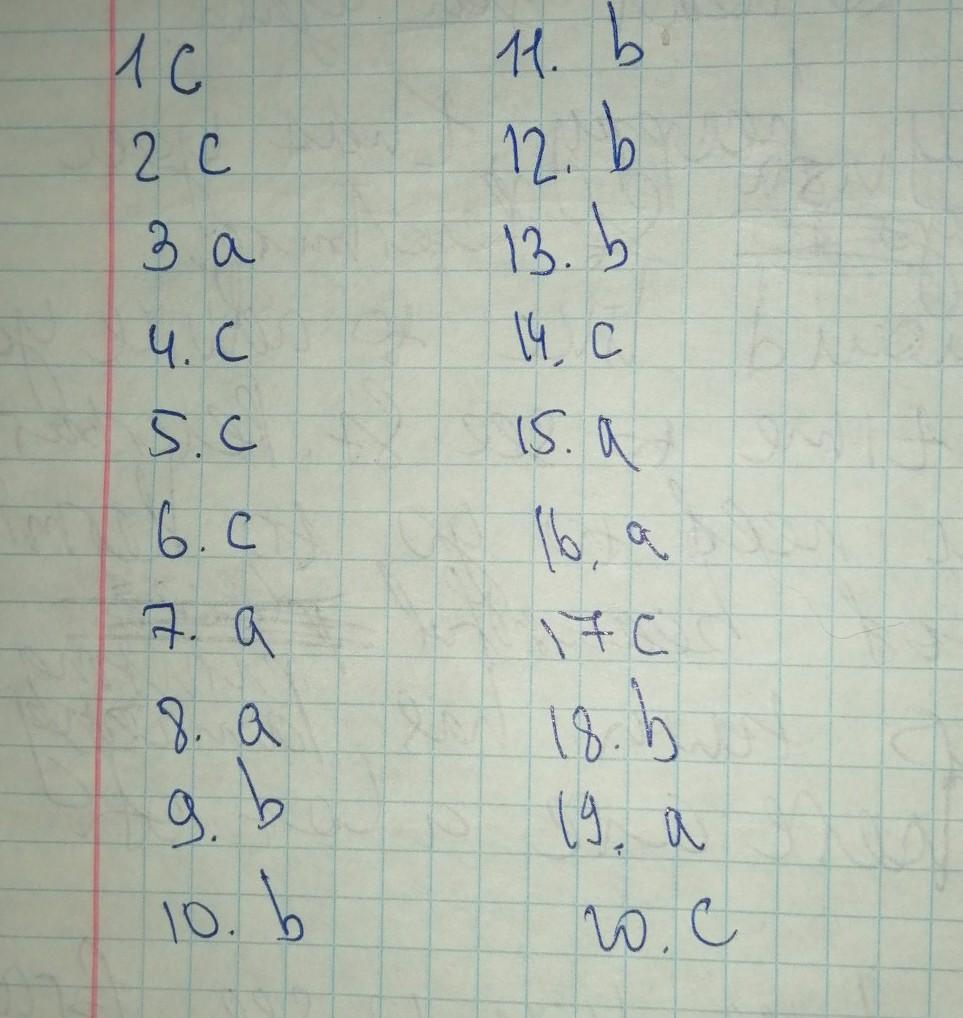 1 c
2 c
3 a
4. c
5. c
6. c
7. a
8. a
9. b
10. b
11. b
12. b
13. b
14. c
15. a
16. a
17 c
18. b
19. a
20. c